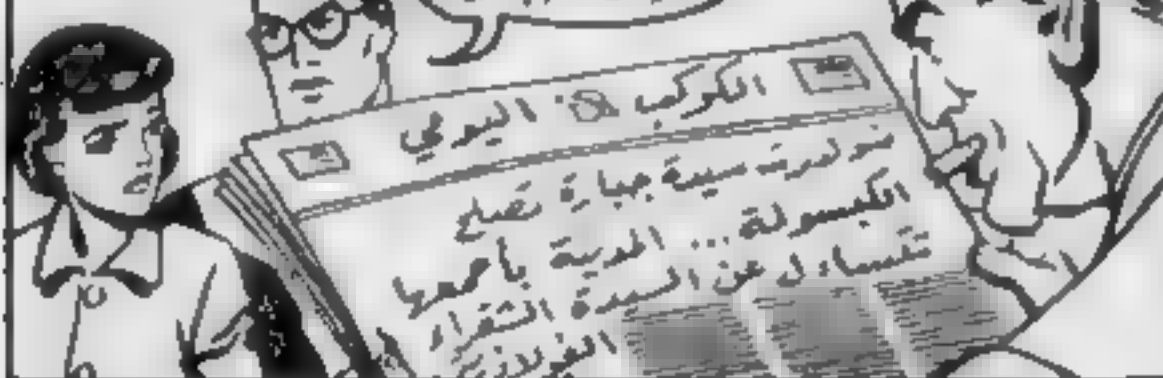 الكوكب اليومي
سيدة جبارة تصلح
الكبسولة... المدينة بأجمعها
تتساءل عن السيدة الشقراء
الفولاذية